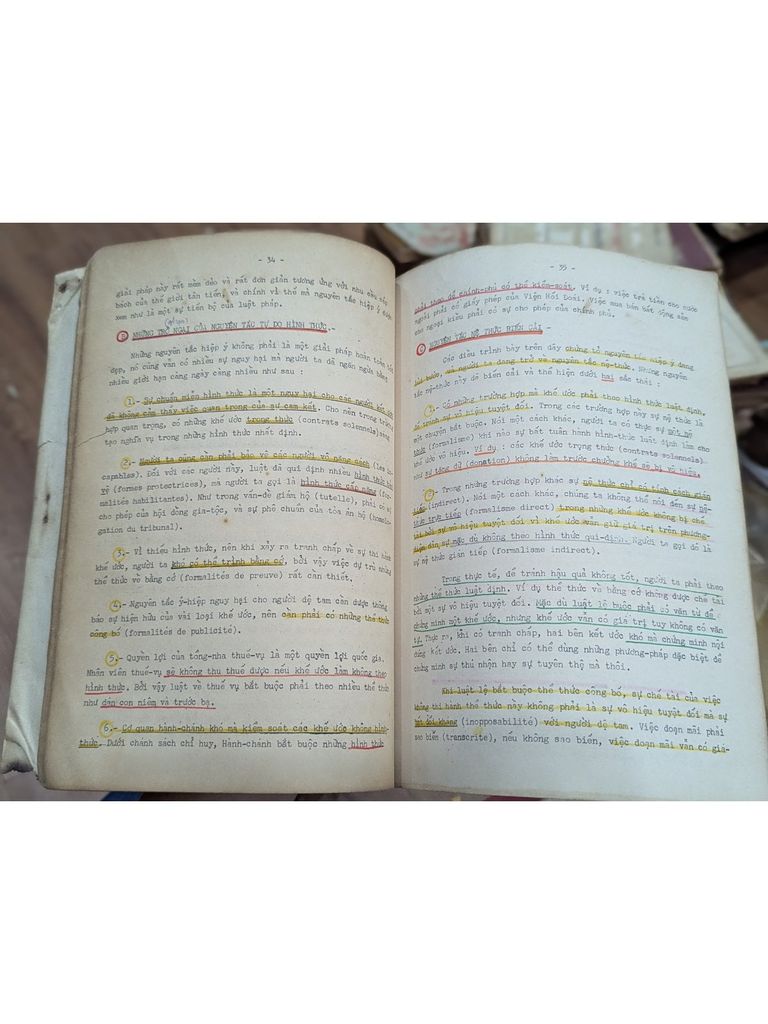 - 34 -
giải pháp này rất mềm dẻo và rất đơn giản tương ứng với nhu cầu cấp
bách của thế giới tân tiến, và chính vì thế mà nguyên tắc hiệp ý được
xem như là một sự tiến bộ của luật pháp.
NHỮNG TRỞ NGẠI CỦA NGUYÊN TẮC TỰ DO HÌNH THỨC.-
Những nguyên tắc hiệp ý không phải là một giải pháp hoàn toàn tốt
đẹp, nó cũng vẫn có nhiều sự nguy hại mà người ta đã ngăn ngừa bằng
nhiều giới hạn càng ngày càng nhiều như sau :
1.- Sự chuẩn miễn hình thức là một nguy hại cho các người kết ước
để không cảm thấy việc quan trọng của sự cam kết. Cho nên trong trường
hợp quan trọng, có những khế ước trọng thức (contrats solennels) sang
tạo nghĩa vụ trong những hình thức nhất định.
2.- Người ta cũng cần phải bảo vệ các người vô năng cách (les in-
capables). Đối với các người này, luật đã qui định nhiều hình thức bảo
vệ (formes protectrices), mà người ta gọi là hình thức cấp năng (for-
malités habilitantes). Như trong vấn-đề giám hộ (tutelle), phải có sự
cho phép của hội đồng gia-tộc, và sự phê chuẩn của tòa án hộ (homolo-
gation du tribunal).
3.- Vì thiếu hình thức, nên khi xảy ra tranh chấp về sự thi hành
khế ước, người ta khó có thể trình bằng cớ, bởi vậy việc dự trù những
thể thức về bằng cớ (formalités de preuve) rất cần thiết.
4.- Nguyên tắc ý-hiệp nguy hại cho người đệ tam cần được thông
báo sự hiện hữu của vài loại khế ước, nên cần phải có những thể thức
công bố (formalités de publicité).
5.- Quyền lợi của tổng-nha thuế-vụ là một quyền lợi quốc gia.
Nhân viên thuế-vụ sẽ không thu thuế được nếu khế ước làm không theo
hình thức. Bởi vậy luật về thuế vụ bắt buộc phải theo nhiều thể thức
như dán con niêm và trước bạ.
6.- Cơ quan hành-chánh khó mà kiểm soát các khế ước không hình-
thức. Dưới chánh sách chỉ huy, Hành-chánh bắt buộc những hình thức
- 35 -
phải theo để chính-phủ có thể kiểm-soát. Ví dụ : việc trả tiền cho nước
ngoài phải có giấy phép của Viện Hối Đoái. Việc mua bán bất động sản
cho ngoại kiều phải có sự cho phép của chính phủ.
C NGUYÊN TẮC NỆ THỨC BIẾN CẢI -
Các điều trình bày trên đây chứng tỏ nguyên tắc hiệp ý đang
lui bước, và người ta đang trở về nguyên tắc nệ-thức. Những nguyên
tắc nệ-thức này đã biến cải và thể hiện dưới hai sắc thái :
1.- Có những trường hợp mà khế ước phải theo hình thức luật định,
để tránh sự vô hiệu tuyệt đối. Trong các trường hợp này sự nệ thức là
một chuyện bắt buộc. Nói một cách khác, người ta có thực sự một nệ
thức (formalisme) khi nào sự bất tuân hành hình-thức luật định làm cho
khế ước vô hiệu. Ví dụ : các khế ước trọng thức (contrats solennels)
như sự tặng dữ (donation) không làm trước chưởng khế sẽ bị vô hiệu.
2.- Trong những trường hợp khác sự nệ thức chỉ có tính cách gián
tiếp (indirect). Nói một cách khác, chúng ta không thể nói đến sự nệ-
thức trực tiếp (formalisme direct) trong những khế ước không bị chế
tài bởi sự vô hiệu tuyệt đối vì khế ước vẫn giữ giá trị trên phương-
diện dân sự mặc dù không theo hình thức qui-định. Người ta gọi đó là
sự nệ thức gián tiếp (formalisme indirect).
Trong thực tế, để tránh hậu quả không tốt, người ta phải theo
những thể thức luật định. Ví dụ thể thức về bằng cớ không được chế tài
bởi một sự vô hiệu tuyệt đối. Mặc dù luật lệ buộc phải có văn tự để
chứng minh một khế ước, nhưng khế ước vẫn có giá trị tuy không có văn
tự. Thực ra, khi có tranh chấp, hai bên kết ước khó mà chứng minh nội
dung kết ước. Hai bên chỉ có thể dùng những phương-pháp đặc biệt để
chứng minh sự thú nhận hay sự tuyên thệ mà thôi.
Khi luật lệ bắt buộc thể thức công bố, sự chế tài của việc
không thi hành thể thức này không phải là sự vô hiệu tuyệt đối mà sự
bất đối kháng (inopposabilité) với người đệ tam. Việc đoạn mãi phải
sao biên (transcrite), nếu không sao biên, việc đoạn mãi vẫn có giá-